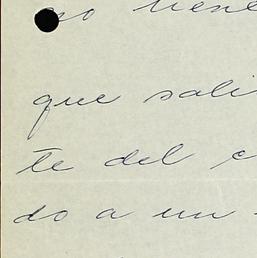 no tiene
que sali
te del c
do a un